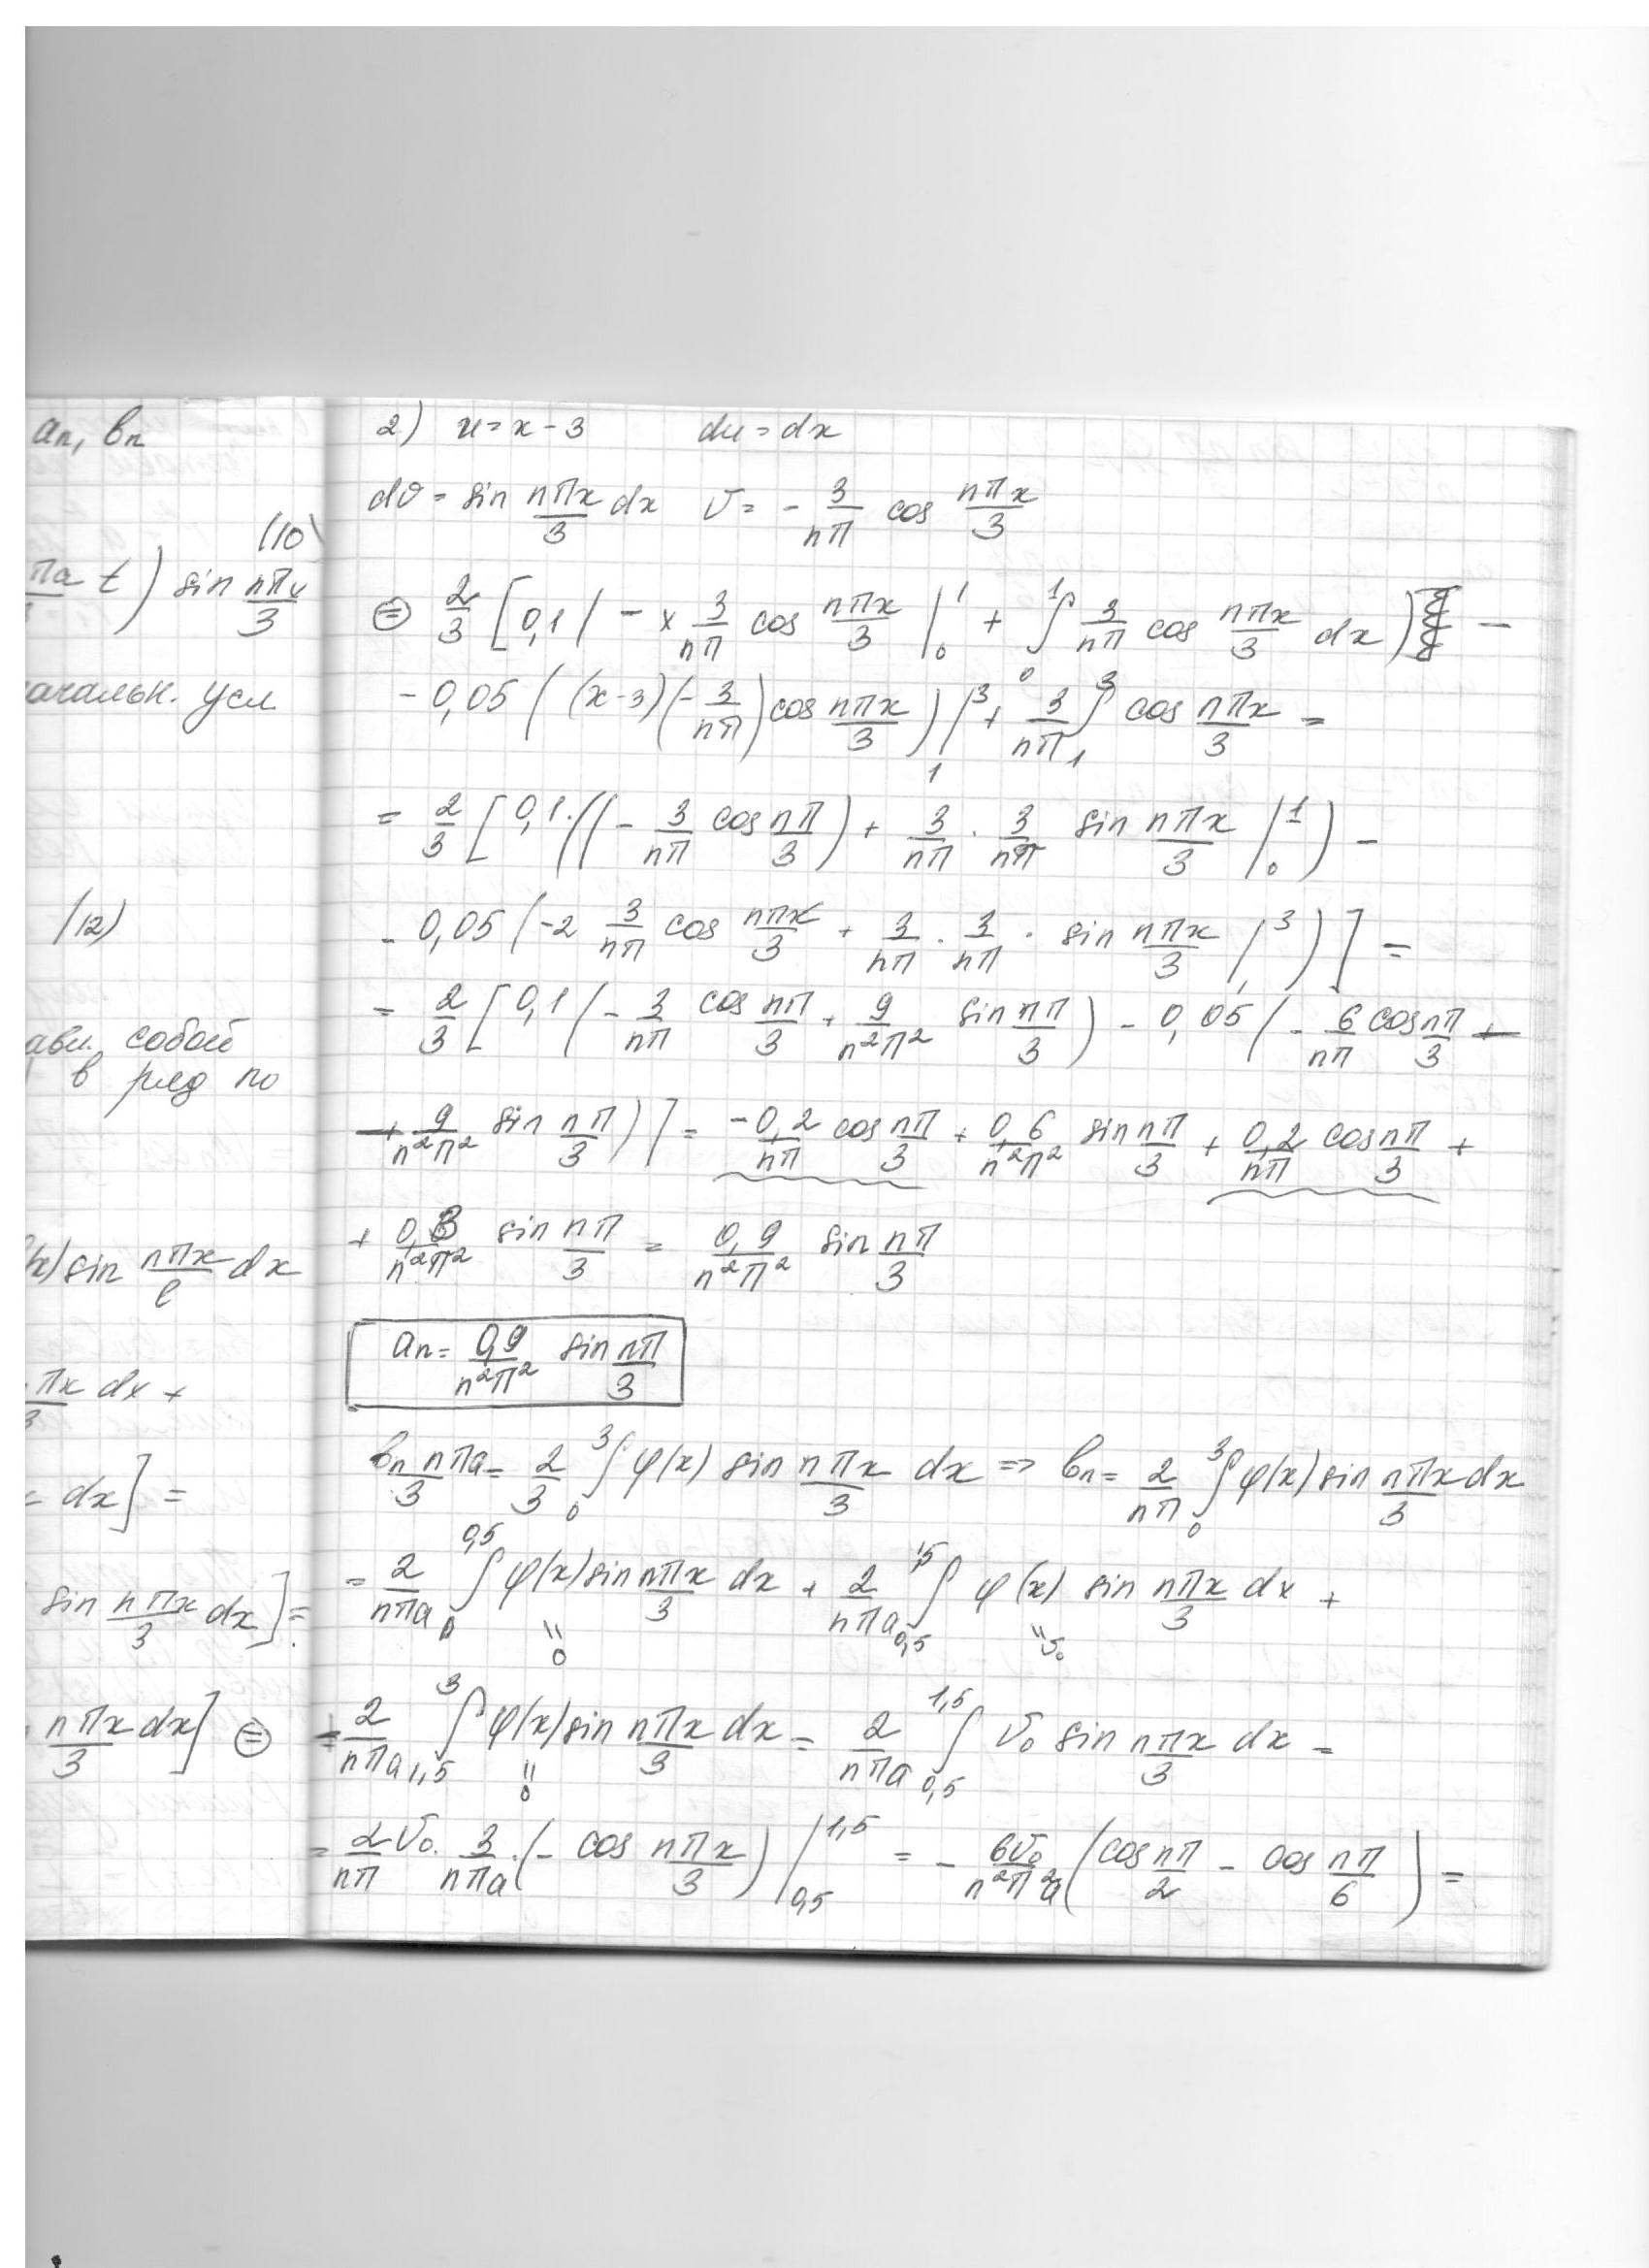 aₙ, bₙ
(10)
πa t) sin nπx/3
ачальн. усл
(12)
авл. собой
в ряд по
x) sin nπx/l dx
πx dx +
dx] =
sin nπx/3 dx] =
nπx/3 dx] ⊜
2) u = x - 3 du = dx
dv = sin nπx/3 dx v = - 3/nπ cos nπx/3
⊜ 2/3 [0,1 ( - x 3/nπ cos nπx/3 |₀¹ + ∫₀¹ 3/nπ cos nπx/3 dx) -
- 0,05 ( (x-3)(- 3/nπ) cos nπx/3 ) |₁³ + 3/nπ ∫₁³ cos nπx/3 =
= 2/3 [0,1·((- 3/nπ cos nπ/3) + 3/nπ · 3/nπ sin nπx/3 |₀¹ ) -
- 0,05 (-2 3/nπ cos nπx/3 + 3/nπ · 3/nπ · sin nπx/3 |₁³ ) ] =
= 2/3 [0,1 (- 3/nπ cos nπ/3 + 9/n²π² sin nπ/3 ) - 0,05 (- 6/nπ cos nπ/3 -
- 9/n²π² sin nπ/3 ) ] = -0,2/nπ cos nπ/3 + 0,6/n²π² sin nπ/3 + 0,2/nπ cos nπ/3 +
+ 0,3/n²π² sin nπ/3 = 0,9/n²π² sin nπ/3
aₙ = 0,9/n²π² sin nπ/3
bₙ nπa/3 = 2/3 ∫₀³ φ(x) sin nπx/3 dx => bₙ = 2/nπ ∫₀³ φ(x) sin nπx/3 dx
= 2/nπa ∫₀^0,5 φ(x) sin nπx/3 dx + 2/nπa ∫_0,5^1,5 φ(x) sin nπx/3 dx +
" 0 " v₀
+ 2/nπa ∫_1,5^3 φ(x) sin nπx/3 dx = 2/nπa ∫_0,5^1,5 v₀ sin nπx/3 dx =
" 0
= 2/nπ v₀ · 3/nπa · (- cos nπx/3 ) |_0,5^1,5 = - 6v₀/n²π²a (cos nπ/2 - cos nπ/6 ) =